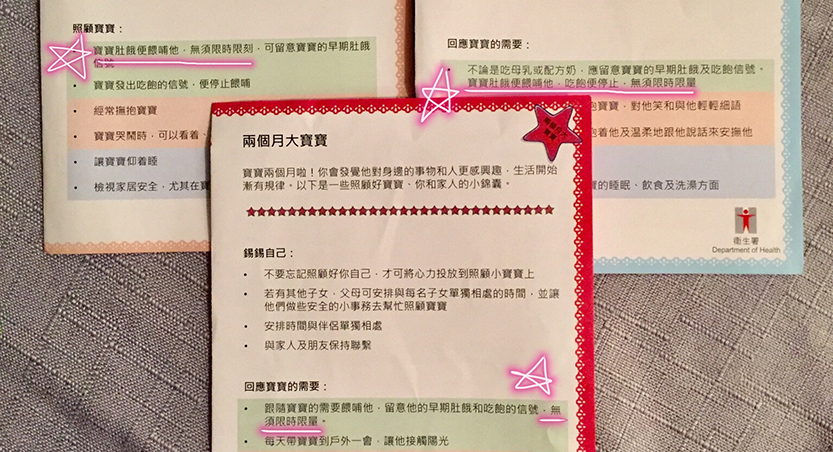 照顧寶寶：
• 寶寶肚餓便餵哺他，無須限時限刻，可留意寶寶的早期肚餓
信號
• 寶寶發出吃飽的信號，便停止餵哺
• 經常撫抱寶寶
• 寶寶哭鬧時，可以看着、
• 讓寶寶仰着睡
• 檢視家居安全，尤其在寶
回應寶寶的需要：
• 不論是吃母乳或配方奶，應留意寶寶的早期肚餓及吃飽信號。
寶寶肚餓便餵哺他，吃飽便停止，無須限時限量
抱寶寶，對他笑和與他輕輕細語
抱着他及溫柔地跟他說話來安撫他
寶的睡眠、飲食及洗澡方面
衞生署
Department of Health
兩個月大
寶寶
兩個月大寶寶
寶寶兩個月啦！你會發覺他對身邊的事物和人更感興趣，生活開始
漸有規律。以下是一些照顧好寶寶、你和家人的小錦囊。
錫錫自己：
• 不要忘記照顧好你自己，才可將心力投放到照顧小寶寶上
• 若有其他子女，父母可安排與每名子女單獨相處的時間，並讓
他們做些安全的小事務去幫忙照顧寶寶
• 安排時間與伴侶單獨相處
• 與家人及朋友保持聯繫
回應寶寶的需要：
• 跟隨寶寶的需要餵哺他，留意他的早期肚餓和吃飽的信號，無
須限時限量。
• 每天帶寶寶到戶外一會，讓他接觸陽光